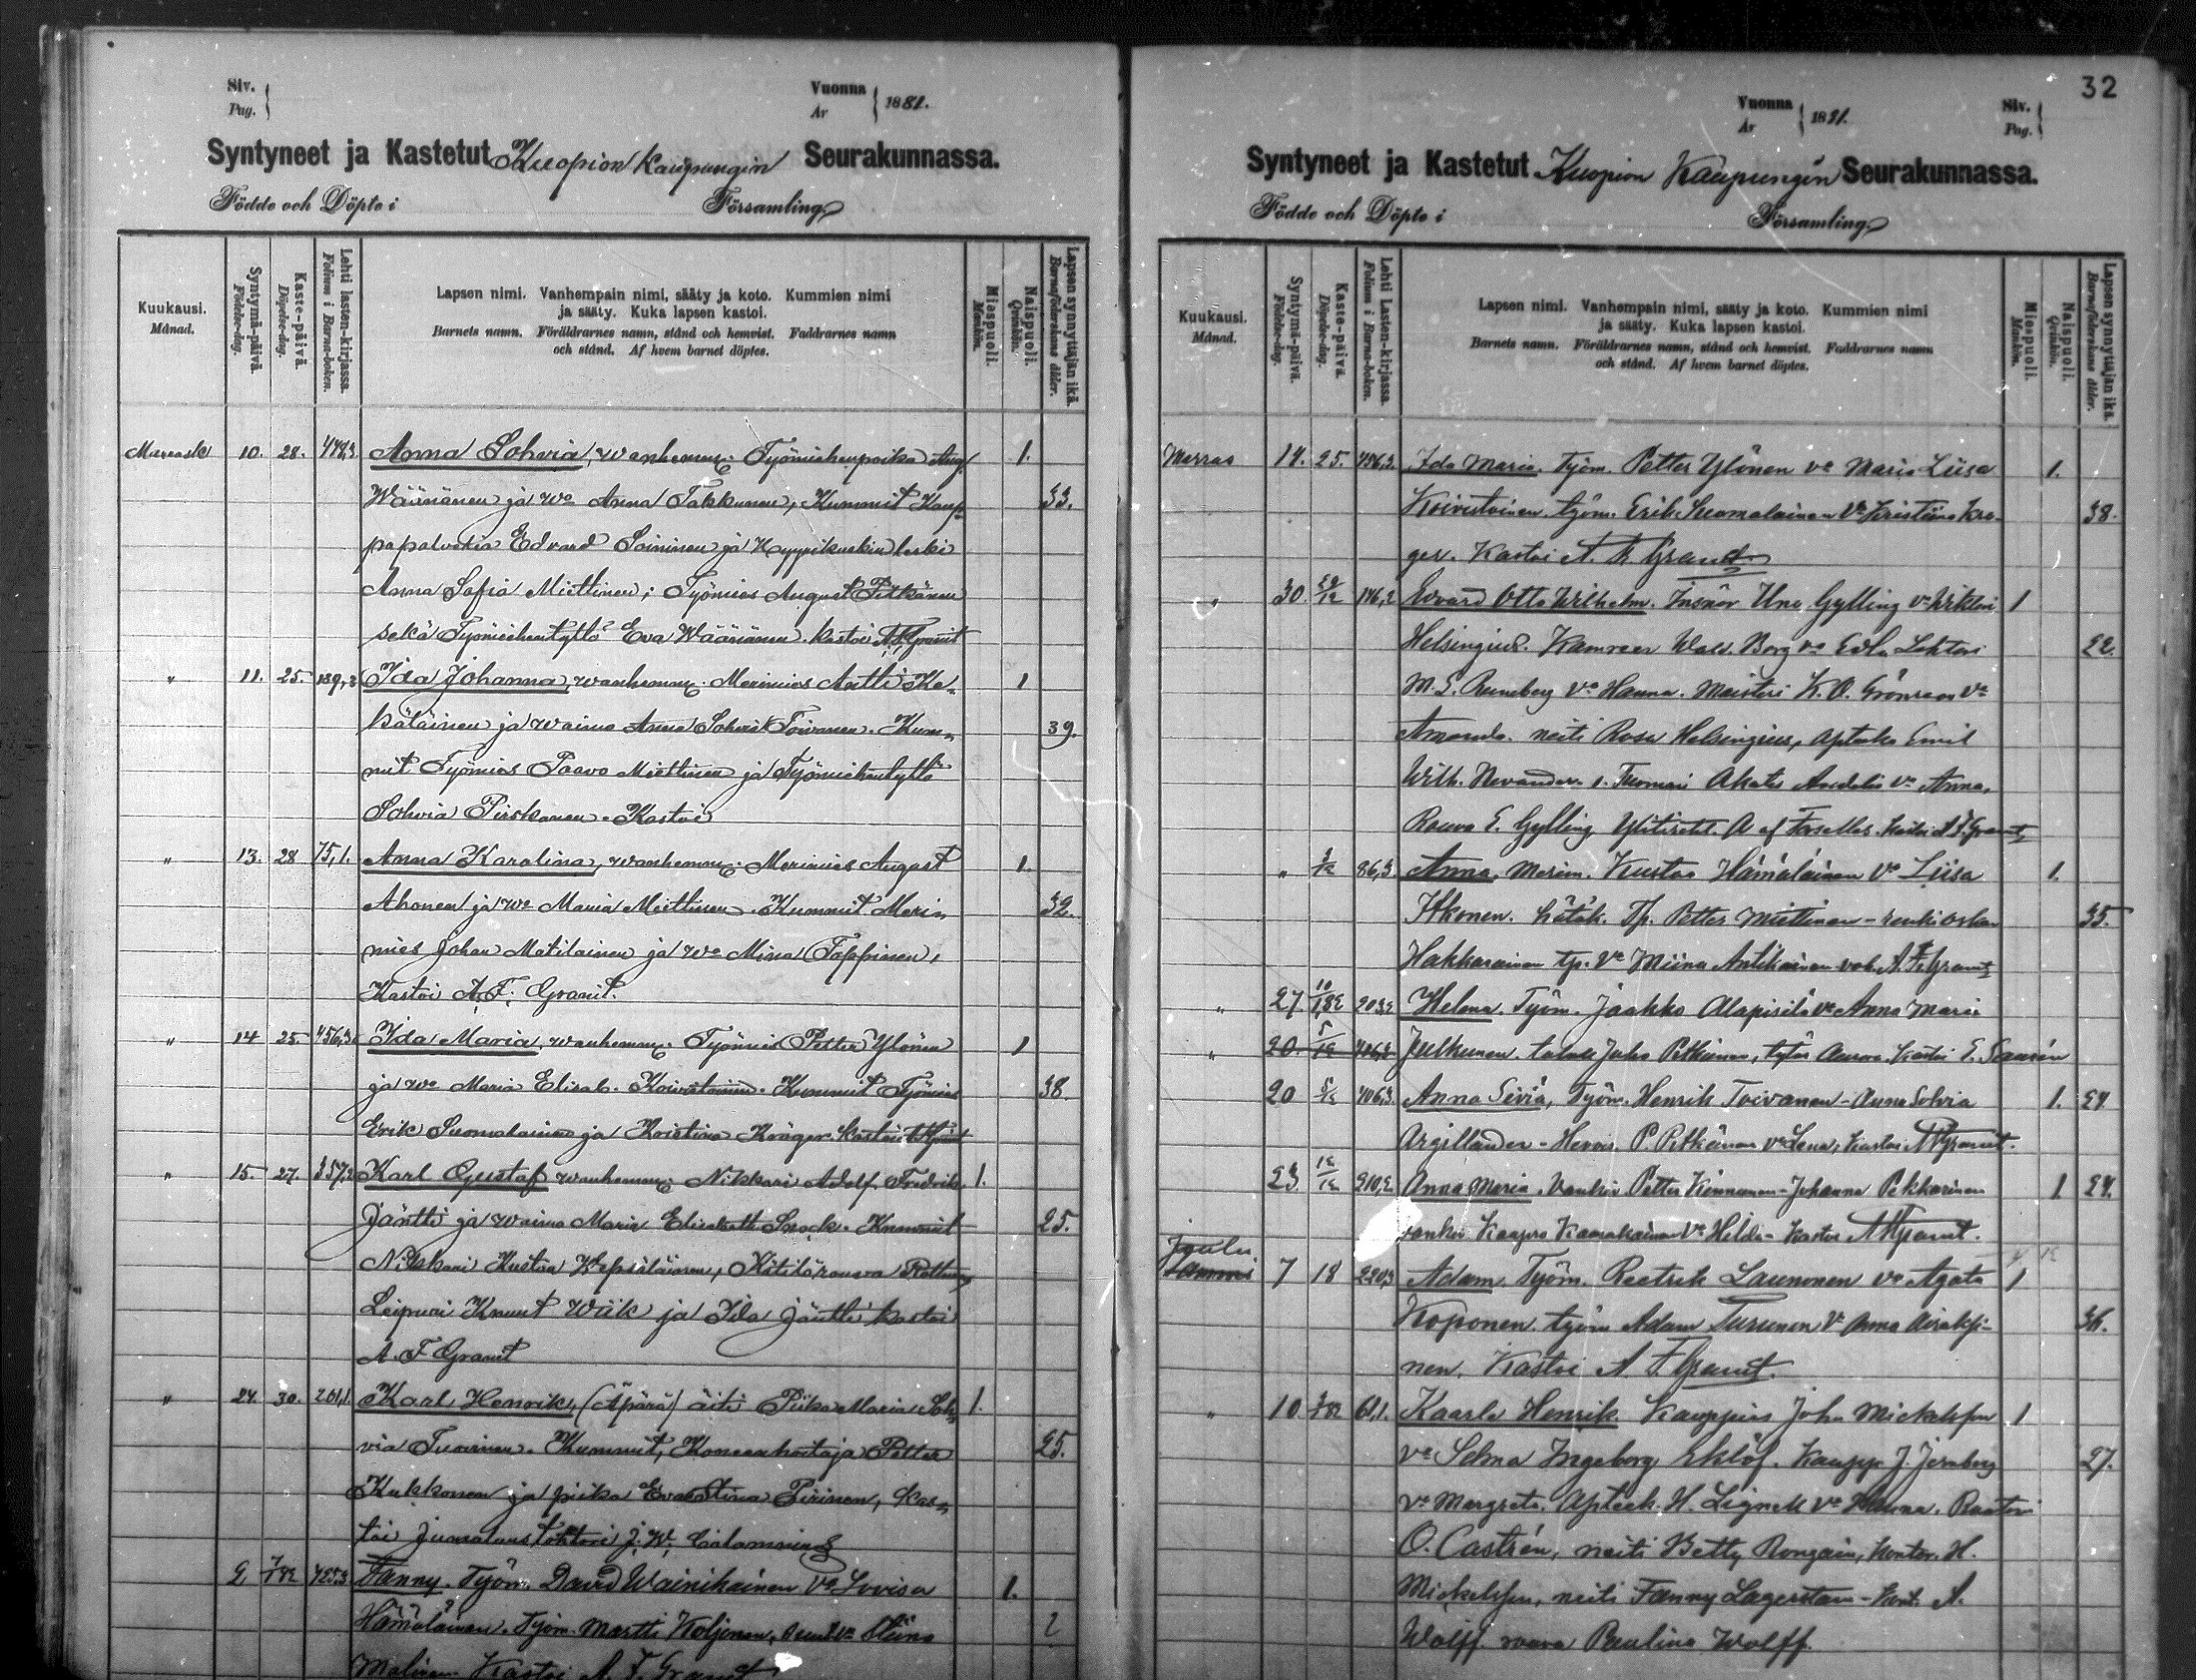 Siv.
Pag.
Vuonna
År
1881.
Syntyneet ja Kastetut Kuopion Kaupungin Seurakunnassa.
Födde och Döpte i Församling.
Kuukausi.
Månad.
Syntymä-päivä.
Födelse-dag.
Kaste-päivä.
Döpelse-dag.
Lehti lasten-kirjassa.
Folium i Barna-boken.
Lapsen nimi. Vanhempain nimi, sääty ja koto. Kummien nimi
ja sääty. Kuka lapsen kastoi.
Barnets namn. Föräldrarnes namn, stånd och hemvist. Faddrarnes namn
och stånd. Af hvem barnet döptes.
Miespuoli.
Mankön.
Naispuoli.
Qvinkön.
Lapsen synnyttäjän ikä.
Barnaföderskans ålder.
10. 28. Anna Sohvia, wanhemm: Työmiehenpoika Aug. 1.
Väänänen ja wo Anna Takkunen, Kummit Kaup= 33.
papalvelia Edvard Soininen ja
Anna Sofia Miettinen; Työmies August Pitkänen
sekä Työmiehentyttö Eva Väänänen. Kastoi A. F. Granit
" 11. 25. 139,3 Ida Johanna, wanhemm: Merimies Antti Ke= 1
käläinen ja waimo Anna Sohvia Toivanen. Kum= 39.
mit Työmies Paavo Miettinen ja Työmiehentyttö
Sohvia Pirskanen. Kastoi
" 13. 28 75,1. Anna Karolina, wanhemm: Merimies August 1.
Ahonen ja wo Maria Miettinen. Kummit Meri= 32.
mies Johan Matilainen ja wo Mina Tappinen,
Kastoi A. F. Granit.
" 14 25. 456,3 Ida Maria, wanhemm: Työmies Petter Ylönen 1
ja wo Maria Elisab. Koivistoinen. Kummit Työmies 38.
Erik Suomalainen ja Kristina Kröger. Kastoi
" 15. 27. 357,2 Karl Gustaf wanhemm: Nikkari Adolf Fredrik 1.
Jäntti ja waimo Maria Elisabeth Snock. Kummit 25.
Nikkari Kustaa Wepsäläinen, Kätilörouva
Leipuri Knuut Wiik ja Ida Jäntti kastoi
A. F Granit
" 24. 30. 201,1. Karl Henrik, (Äpärä) äiti Piika Maria Soh= 1.
via Tuovinen. Kummit, Koneenhoitaja Petter 25.
Kukkonen ja piika Evastina Pirinen, kas=
toi Jumaluus tohtori J. W.
2 7/1 82 425,3 Fanny. Työm. David Wainikainen Vo Lovisa 1.
Hämäläinen. Työm. Martti Koljonen, Vo Stiina 2
Malinen. Kastoi A. F. Granit
32
Vuonna
År
1881.
Siv.
Pag.
Syntyneet ja Kastetut Kuopion Kaupungin Seurakunnassa.
Födde och Döpte i Församling.
Kuukausi.
Månad.
Syntymä-päivä.
Födelse-dag.
Kaste-päivä.
Döpelse-dag.
Lehti Lasten-kirjassa.
Folium i Barna-boken.
Lapsen nimi. Vanhempain nimi, sääty ja koto. Kummien nimi
ja sääty. Kuka lapsen kastoi.
Barnets namn. Föräldrarnes namn, stånd och hemvist. Faddrarnes namn
och stånd. Af hvem barnet döptes.
Miespuoli.
Mankön.
Naispuoli.
Qvinkön.
Lapsen synnyttäjän ikä.
Barnaföderskans ålder.
Marras 14. 25. 456,3. Ida Maria. Työm. Petter Ylönen vo Maria Liisa 1.
Koivistoinen. työm. Erik Suomalainen Vo Kristiina Krö= 38.
ger. Kastoi A. F. Granit
" 30. 29/12 146,2 Edvard Otto Wilhelm. Insinör Uno Gylling vo 1
Helsingius. Kamreer Wald. Borg vo Lektori 22.
M. S. Runeberg Vo Hanna. Maisteri K. O. Grönroos Vo
Amanda. neiti Rosa Helsingius, Emil
Wilh. Nevander. Tuomari vo Anna,
Rouva E. Gylling A af Forselles. A. F. Granit
" 3/12 86,3 Anna. Merim. Kustaa Hämäläinen Vo Liisa 1.
Itkonen. hätäk. Tp. Petter Miettinen - renki Oskar 35.
Hakkarainen tp. Vo Miina Antikainen A. F. Granit
" 27. Helena. Työm. Jaakko Alapiisilä vo Anna Maria
" 20. 5/12 406,3 Julkunen. Juho Pitkänen, Kastoi E. Saurén
20 5/12 406,3. Anna Siviä, Työm. Henrik Toivanen - Anna Sohvia 1. 24
Argillander - P. Pitkänen Vo Lena, Kastoi A F Granit.
23. 12/12 210,2 Anna Maria. Petter Kinnunen - Johanna Pekkarinen 1 24.
Vo Hilda - Kastoi A F Granit.
Joulu 7 18 220,3 Adam. Työm. Reetrik Launonen vo Agata 1
Koponen. työm Adam Turunen Vo Anna Airaksi= 36.
nen. Kastoi A. F. Granit.
" 10. 61,1. Kaarle Henrik. Kauppias John Mickelsson 1
vo Selma Ingeborg Eklöf. Kaupp. J. Jernberg 27.
vo Margreta. Aptek. H. Lignell vo Raatari
O. Castrén, neiti Betty Kontor. H.
Mickelsson, neiti Fanny Lagerstam - Kont. A.
Wolff. rouva Paulina Wolff.